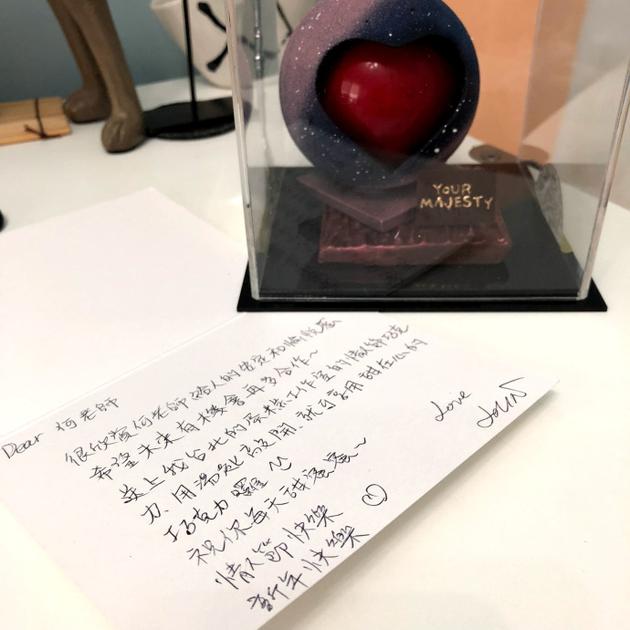 YOUR
MAJESTY
Dear 何老師
很欣賞何老師給人的和愉悅感
希望未來有機會再多合作~
送上我台北的工作室的情人節巧克
力.用湯匙敲開.就可享用甜在心的
巧克力囉
祝你每天甜蜜蜜~
情人節快樂
新年快樂
Love
JOHN